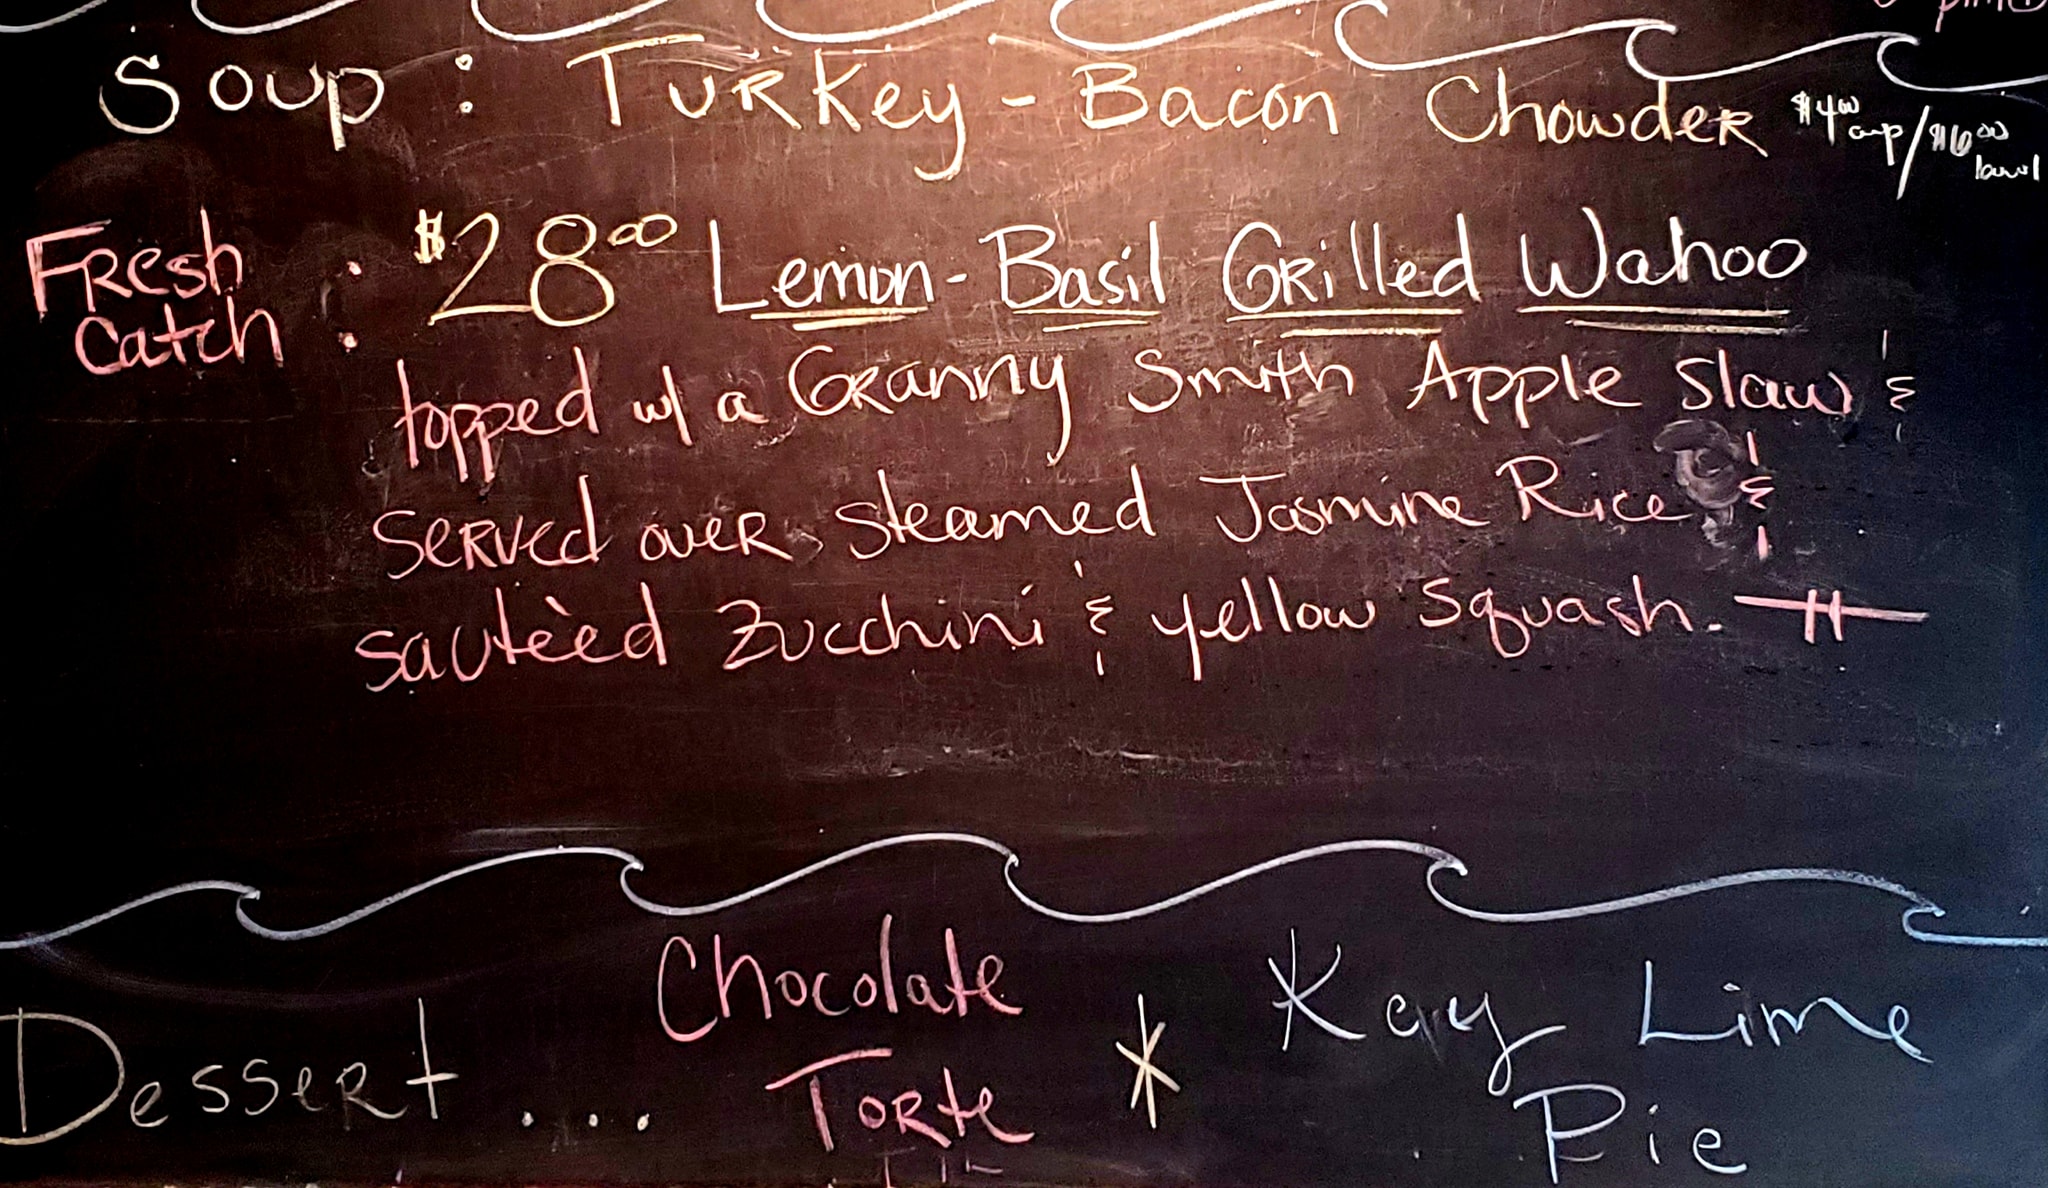 Soup : Turkey - Bacon Chowder $4.00 cup / $6.00 bowl
Fresh Catch : $28.00 Lemon - Basil Grilled Wahoo
topped w/ a Granny Smith Apple Slaw &
served over steamed Jasmine Rice &
sautèed Zucchini & yellow squash.
Dessert .... Chocolate Torte * Key Lime Pie